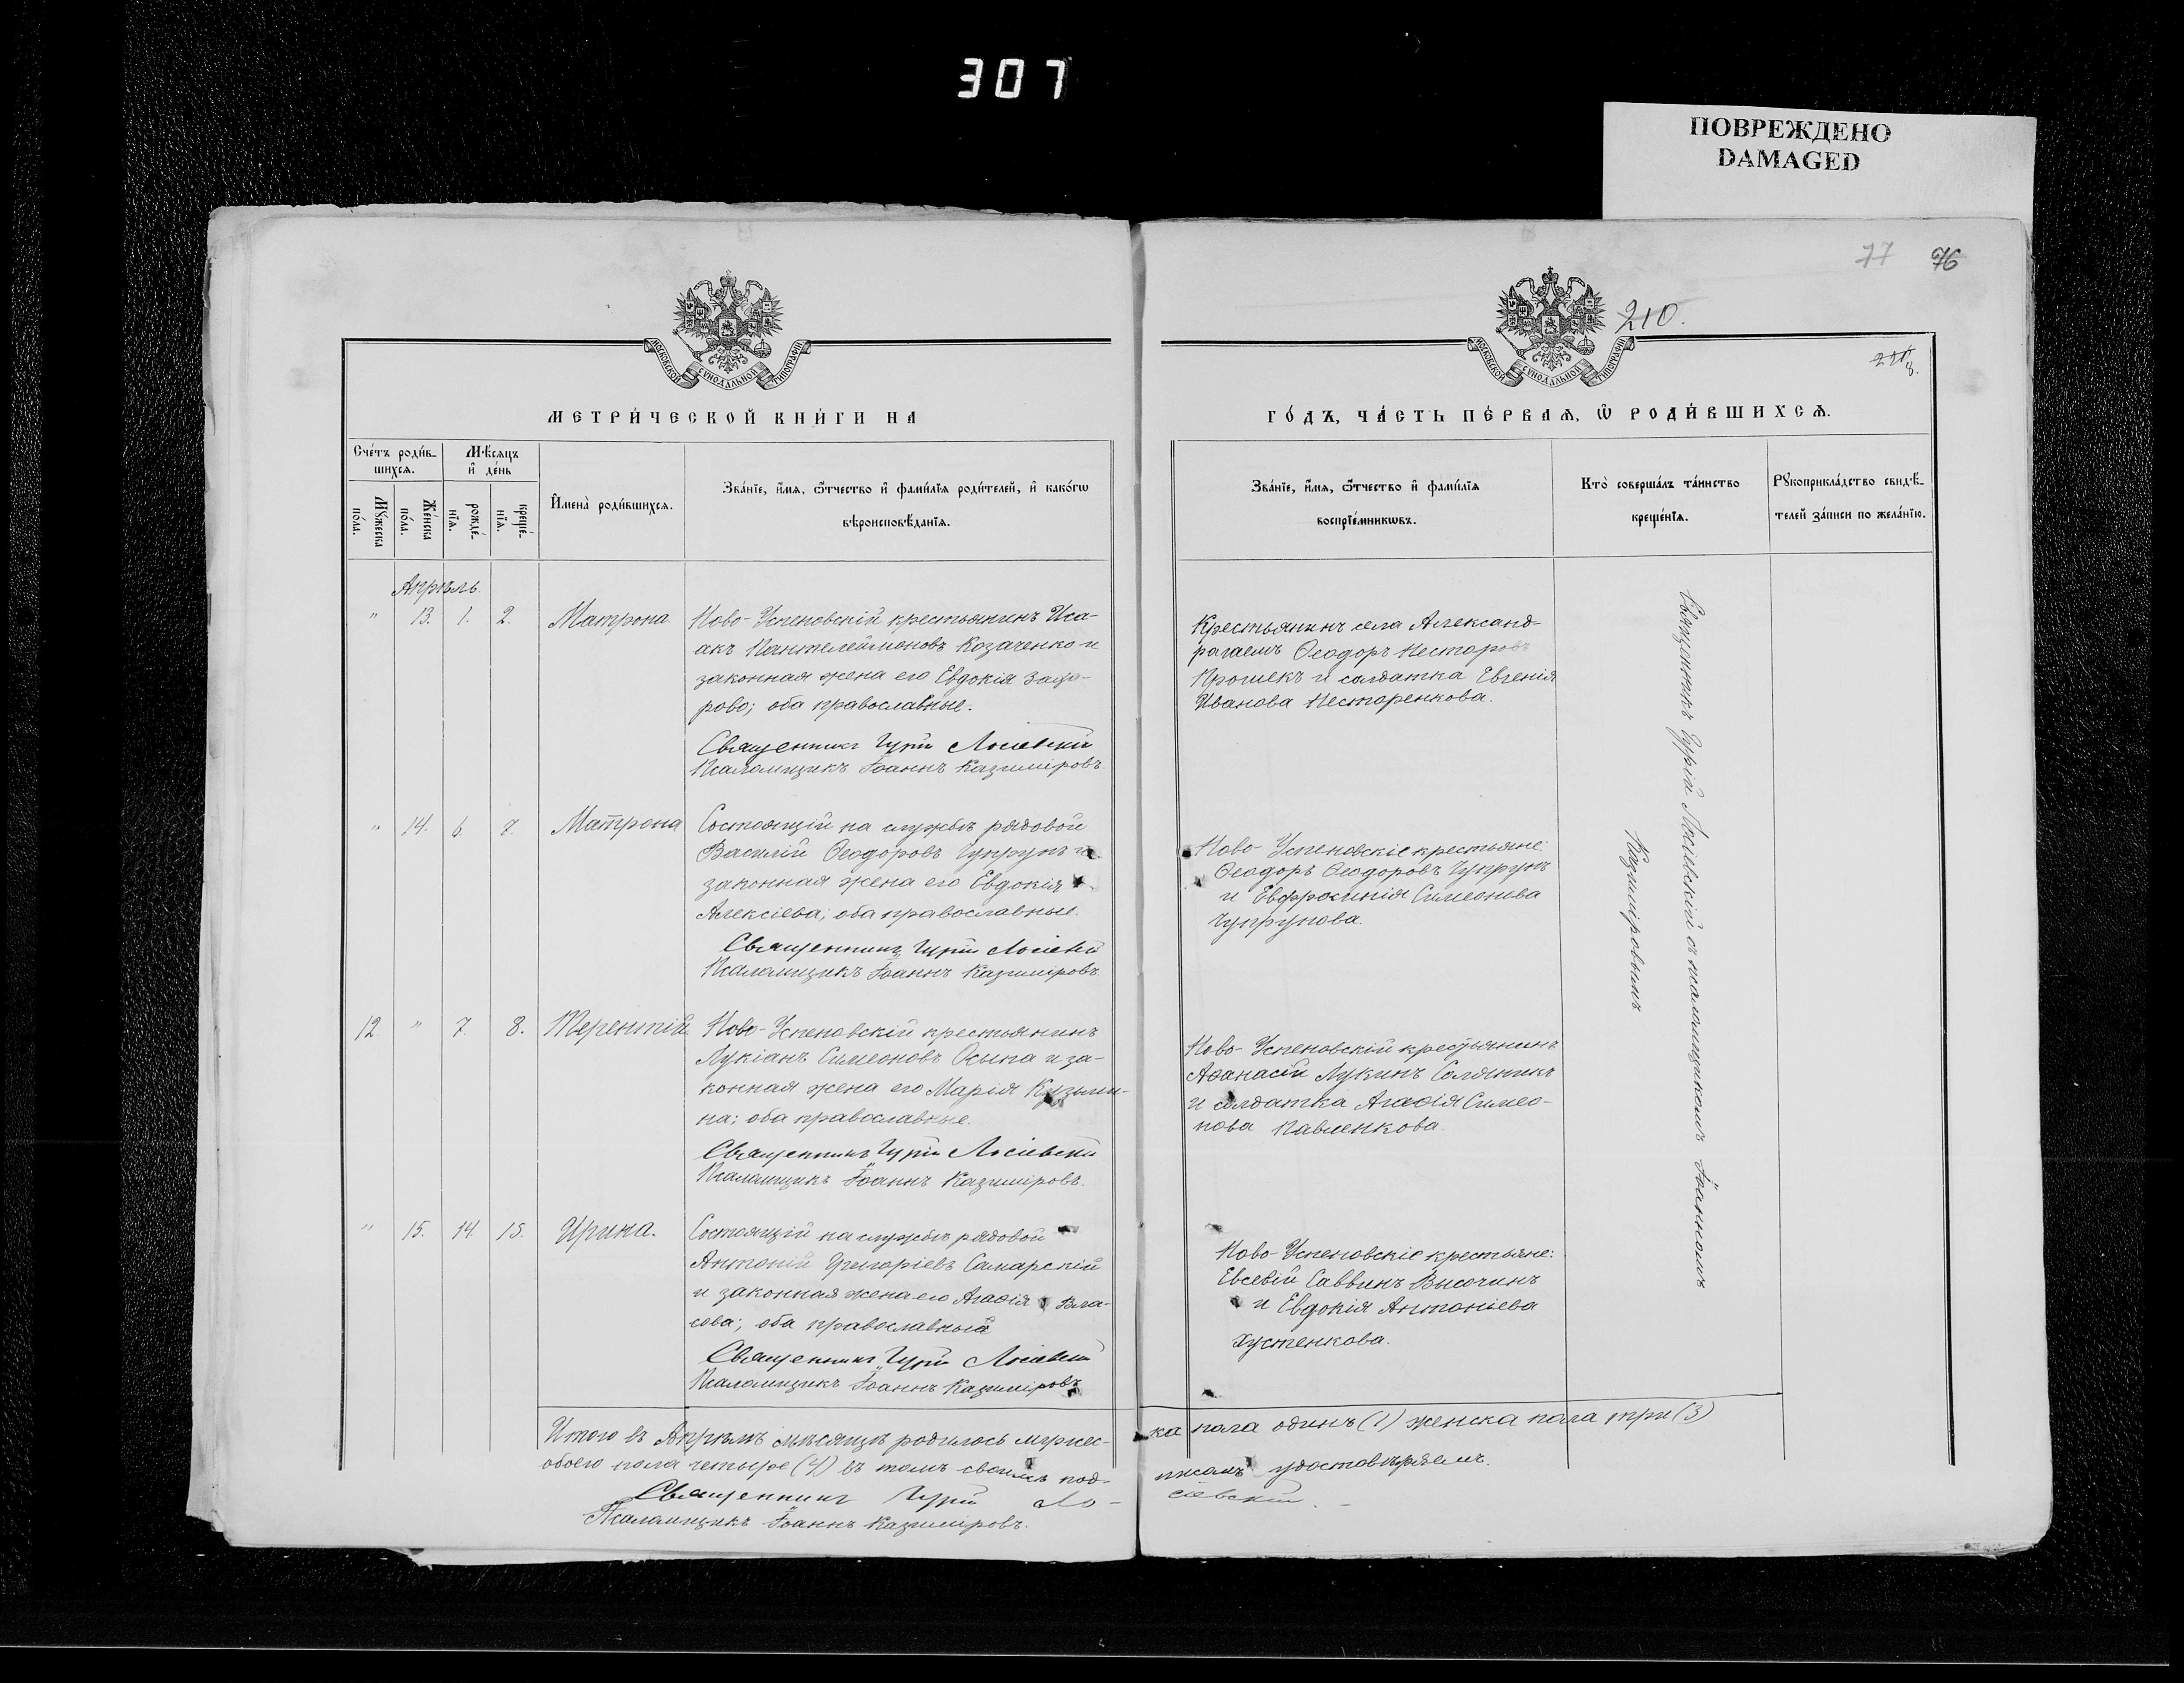 307
ПОВРЕЖДЕНО
DAMAGED
77 76
210.
МОСКОВСКОЙ СУНОДАЛЬНОЙ ТИПОГРАФІИ
МОСКОВСКОЙ СУНОДАЛЬНОЙ ТИПОГРАФІИ
МЕТРИ́ЧЕСКОЙ КНИ́ГИ НА
ГО́ДЪ, ЧА́СТЬ ПЕ́РВАѦ, Ѡ РОДИ́ВШИХСѦ.
Счетъ роди́в-
шихсѧ.
Мꙋ́жеска
по́ла.
Же́нска
по́ла.
Мѣ́сѧцъ
и҆ де́нь
рожде́-
нїѧ.
креще́-
нїѧ.
И҆мена̀ роди́вшихсѧ.
Зва́нїе, и҆́мѧ, ѻ҆́тчество и҆ фами́лїѧ роди́телей, и҆ како́гѡ
вѣроисповѣ́данїѧ.
Зва́нїе, и҆́мѧ, ѻ҆́тчество и҆ фами́лїѧ
воспрїе́мникѡвъ.
Кто̀ соверша́лъ та́инство
креще́нїѧ.
Рꙋкоприкла́дство свидѣ́-
телей за́писи по жела́нїю.
Апрѣль.
" 13. 1. 2. Матрона
Ново-Успеновскій крестьянинъ Иса-
акъ Пантелеймоновъ Козаченко и
законная жена его Евдокія
рово; оба православные.
Священникъ Гурій Лосіевскій
Псаломщикъ Іоаннъ Казиміровъ.
Крестьянинъ села Александ-
Ѳеодоръ Несторовъ
и солдатка Евгенія
Иванова Нестеренкова.
" 14. 6. 7. Матрона
Состоящій на службѣ рядовой
Василій Ѳеодоровъ Чупрунъ и
законная жена его Евдокія
Алексіева; оба православные.
Священникъ Гурій Лосіевскій
Псаломщикъ Іоаннъ Казиміровъ.
Ново-Успеновскіе крестьяне:
Ѳеодоръ Ѳеодоровъ Чупрунъ
и Евфросинія Симеонова
Чупрунова.
12 " 7. 8. Терентій
Ново-Успеновскій крестьянинъ
Лукіанъ Симеоновъ Осыпа и за-
конная жена его Марія Кузьми-
на; оба православные.
Священникъ Гурій Лосіевскій
Псаломщикъ Іоаннъ Казиміровъ.
Ново-Успеновскій крестьянинъ
Аѳанасій Лукинъ Соляникъ
и солдатка Агаѳія Симео-
нова Павленкова.
" 15. 14. 15. Ирина.
Состоящій на службѣ рядовой
Антоній Григоріевъ Самарскій
и законная жена его Агаѳія Вла-
сова; оба православныя
Священникъ Гурій Лосіевскій
Псаломщикъ Іоаннъ Казиміровъ
Ново-Успеновскіе крестьяне:
Евсевій Саввинъ Височинъ
и Евдокія Антоніева
Хустенкова.
Священникъ Гурій Лосіевскій съ псаломщикомъ Іоанномъ
Казиміровымъ
Итого въ Апрѣлѣ мѣсяцѣ родилось мужес-
ка пола одинъ (1) женска пола три (3)
обоего пола четыре (4) въ томъ своимъ под-
писомъ удостовѣряемъ.
Священникъ Гурій Ло-
сіевскій.
Псаломщикъ Іоаннъ Казиміровъ.